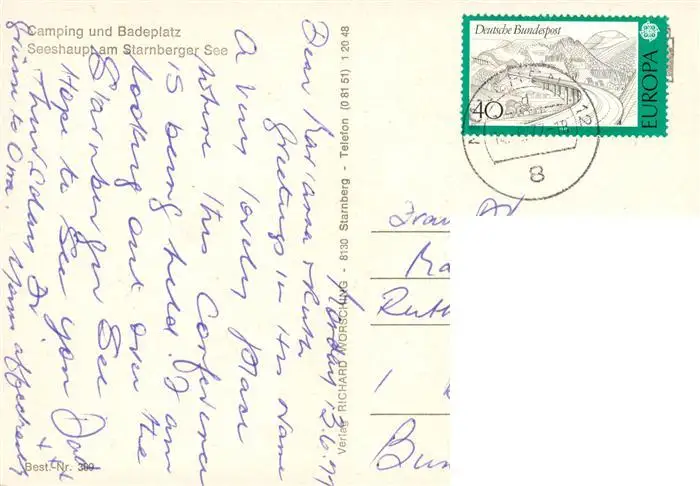 Camping und Badeplatz
Seeshaupt am Starnberger See
Monday 13.6.77
Dear Marianna + Ruth
Greetings in His Name
A very lovely place
where this Conference
is being held. I am
looking out over the
Starnberger See
Hope to see you
Thursday
Love to Oma.
Best.-Nr. 309
Verlag RICHARD WÖRSCHING - 8130 Starnberg - Telefon (0 81 51) 1 20 48
Deutsche Bundespost
40
EUROPA
12
8
Frau
Ma
Ruth
1
Bun